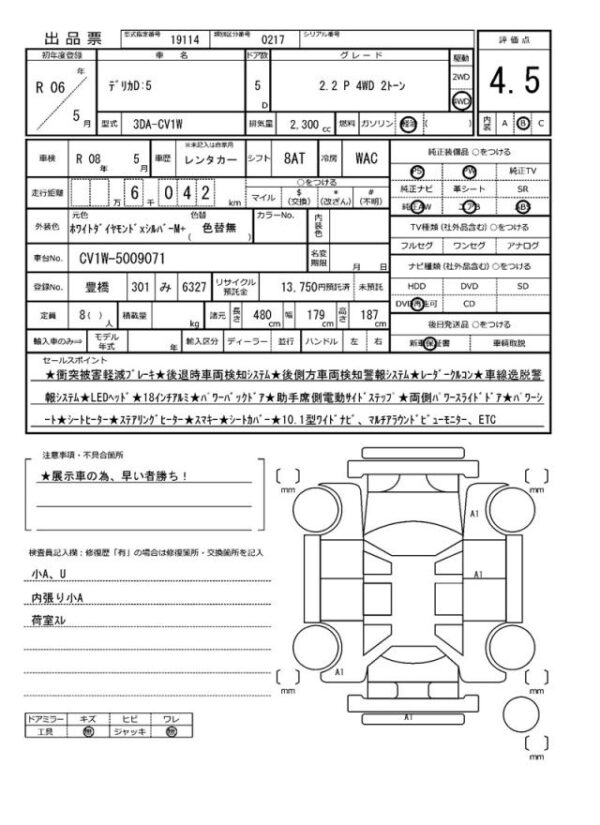 出品票 型式指定番号 19114 類別区分番号 0217 シリアル番号
評価点
4.5
内装 A B C
初年度登録 車名 ドア数 グレード 駆動
R 06 年 5 月
デリカD:5
5 D
2.2 P 4WD 2トーン
2WD
4WD
型式 3DA-CV1W 排気量 2,300 cc 燃料 ガソリン 軽油 ( )
車検 R 08 年 5 月 車歴 ※未記入は自家用 レンタカー シフト 8AT 冷房 WAC
走行距離 万 6 千 0 4 2 km
○をつける
マイル $ (交換) * (改ざん) # (不明)
外装色 元色 ホワイトダイヤモンドxシルバーM+ 色替 ( 色替無 ) カラーNo. 内装色
車台No. CV1W-5009071 名変期限 月 日
登録No. 豊橋 301 み 6327 リサイクル預託金 13,750円預託済 未預託
定員 8( ) 人 積載量 kg 諸元 長さ 480 cm 幅 179 cm 高さ 187 cm
輸入車のみ⇒ モデル年式 年 輸入区分 ディーラー 並行 ハンドル 左 右
純正装備品 ○をつける
PS PW 純正TV
純正ナビ 革シート SR
純正AW エアB ABS
TV種類 (社外品含む) ○をつける
フルセグ ワンセグ アナログ
ナビ種類 (社外品含む) ○をつける
HDD DVD SD
DVD再生可 CD
後日発送品 ○をつける
新車保証書 車輌取説
セールスポイント
★衝突被害軽減ブレーキ★後退時車両検知システム★後側方車両検知警報システム★レーダークルコン★車線逸脱警
報システム★LEDヘッド★18インチアルミ★パワーバックドア★助手席側電動サイドステップ★両側パワースライドドア★パワーシ
ート★シートヒーター★ステアリングヒーター★スマキー★シートカバー★10.1型ワイドナビ、マルチアラウンドビューモニター、ETC
注意事項・不具合箇所
★展示車の為、早い者勝ち！
検査員記入欄：修復歴「有」の場合は修復箇所・交換箇所を記入
小A、U
内張り小A
荷室スレ
ドアミラー キズ ヒビ ワレ
工具 無 ジャッキ 無
mm
mm
A1
A1
A1
mm
mm
A1
mm